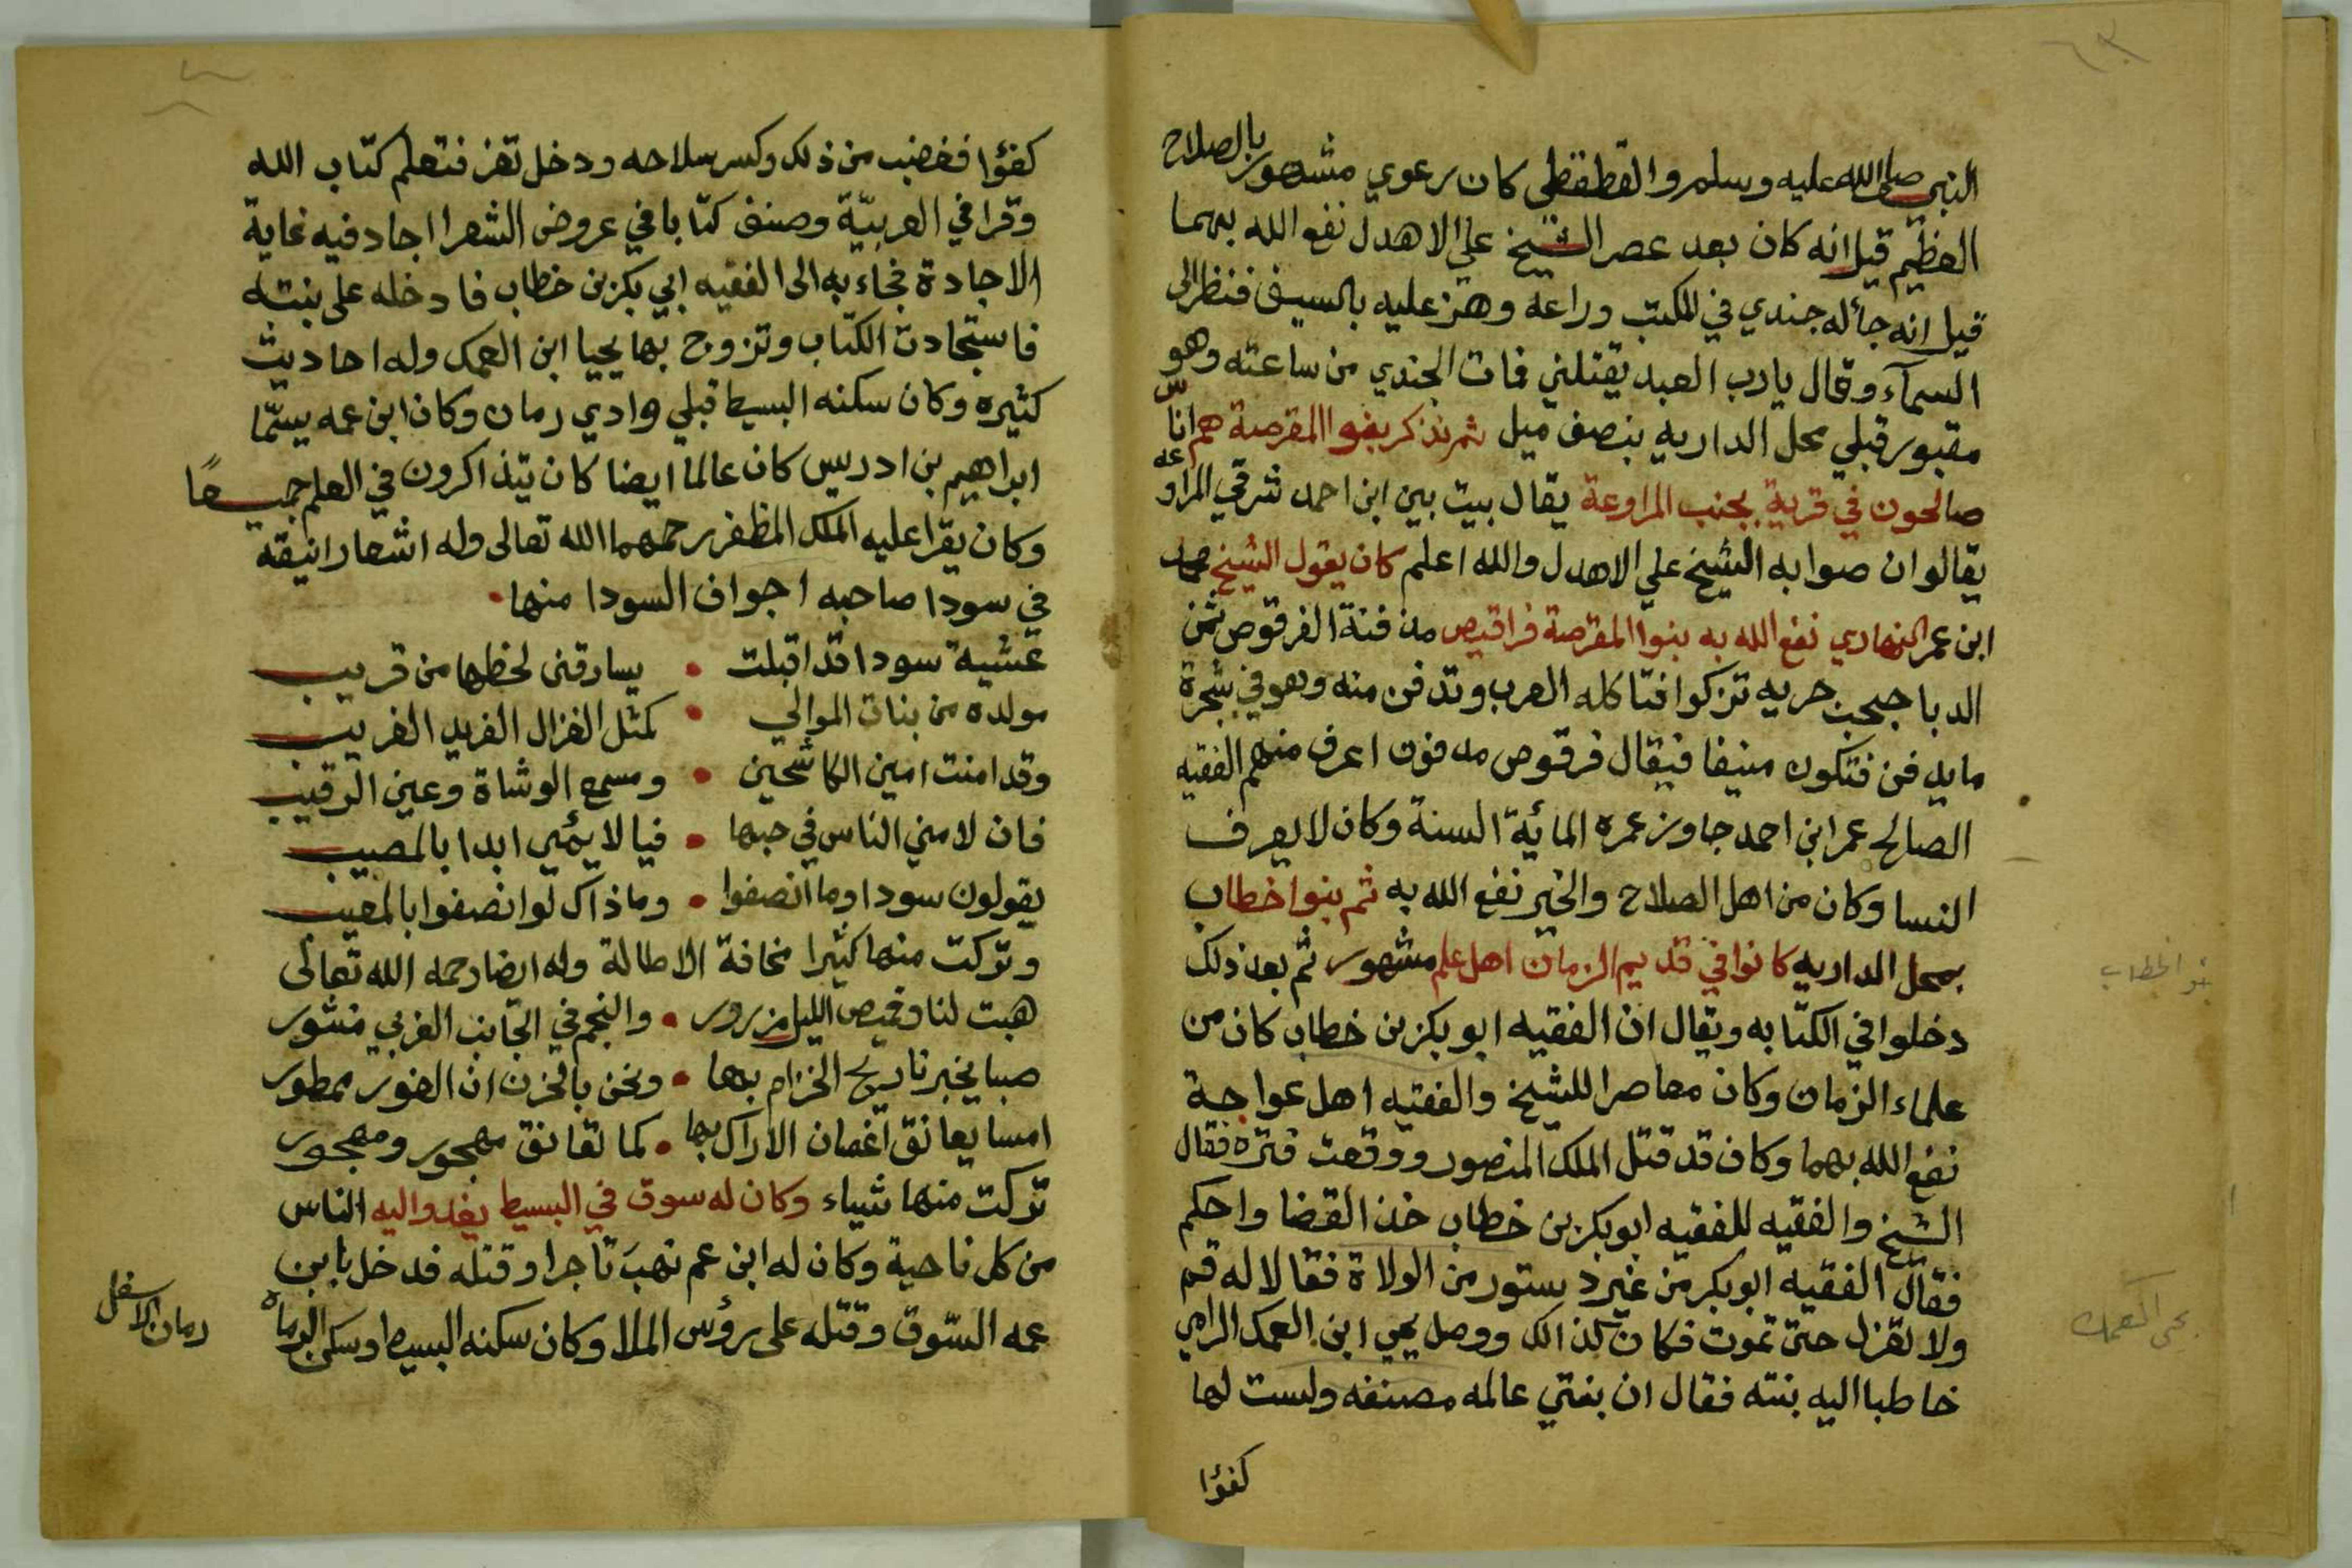 النبي صلى الله عليه وسلم والقطقطي كان رعوي مشهور بالصلاح
العظيم قيل انه كان بعد عصر الشيخ علي الاهدل نفع الله بهما
قيل انه جأله جندي في المكتب وراعه وهز عليه بالسيف فنظر الى
السمآء وقال يا رب العبد يقتلني فمات الجندي من ساعته وهو
مقبور قبلي محل الداريه بنصف ميل ثم نذكر بنوا المقرصة هم اناس
صالحون في قرية بجنب المراوعة يقال بيت بين ابن احمد شرقي المراوعه
يقالوان صوابه الشيخ علي الاهدل والله اعلم كان يقول الشيخ محمد
ابن عمر النهاري نفع الله به بنوا المقرصة فراقيص مدفنة الفرقوص ثمن
الدبا حريه تركوا فتاكله العرب وتدفن منه وهو في شجرة
ما يدفن فتكون منيفا فيقال فرقوص مدفون اعرف منهم الفقيه
الصالح عمر ابن احمد جاوز عمره المائية السنة وكان لا يعرف
النسا وكان من اهل الصلاح والخير نفع الله به ثم بنوا خطاب
بمحل الداريه كانوا في قديم الزمان اهل علم مشهور ثم بعد ذلك
دخلوا في الكتابه ويقال ان الفقيه ابو بكر بن خطاب كان من
علماء الزمان وكان معاصرا للشيخ والفقيه اهل عواجة
نفع الله بهما وكان قد قتل الملك المنصور ووقعت فترة فقال
الشيخ والفقيه للفقيه ابو بكر بن خطاب خذ القضا واحكم
فقال الفقيه ابو بكر من غير دستور من الولاة فقالا له قم
ولا تعزل حتى تموت فكان كذالك ووصل يحيى ابن العمك الرامي
خاطبا اليه بنته فقال ان بنتي عالمه مصنفه ولست لها
كفؤا
بنو الخطاب
يحيى العمك
كفؤا فغضب من ذلك وكسر سلاحه ودخل تعز فتعلم كتاب الله
وقرا في العربيّة وصنف كتابا في عروض الشعر اجاد فيه غاية
الاجادة فجاء به الى الفقيه ابي بكر بن خطاب فادخله على بنته
فاستجادت الكتاب وتزوج بها يحيا ابن العمك وله احاديث
كثيره وكان سكنه البسيط قبلي وادي رمان وكان ابن عمه يسمّا
ابراهيم بن ادريس كان عالما ايضا كان يتذاكرون في العلم جميعًا
وكان يقرا عليه الملك المظفر رحمهما الله تعالى وله اشعار انيقة
في سودا صاحبه اجواف السودا منها
عشية سودا قد اقبلت • يسارقنى لحظها من قريب
مولده من بنات الموالي • كمثل الغزال الفريد الغريب
وقد امنت امين الكاشحين • ومسمع الوشاة وعين الرقيب
فان لامني الناس في حبها • فيا لايمي ابدا بالمصيب
يقولون سودا وما انصفوا • وما ذاك لو انصفوا بالمعيب
وتركت منها كثيرا مخافة الاطالة وله ايضا رحمه الله تعالى
هبت لنا وقميص الليل مزرور • والنجم في الجانب الغربي منشور
صبا يخبرنا ريح الخزام بها • ونحن بالحزن ان الغور ممطور
امسا يعانق اغصان الاراك بها • كما تعانق مهجور ومهجور
تركت منها شياء وكان له سوق في البسيط يغدوا اليه الناس
من كل ناحية وكان له ابن عم نهبَ تاجرا وقتله فدخل بابن
عمه السّوق وقتله على رؤس الملا وكان سكنه البسيط وسكن الرماه
رمان الاسفل